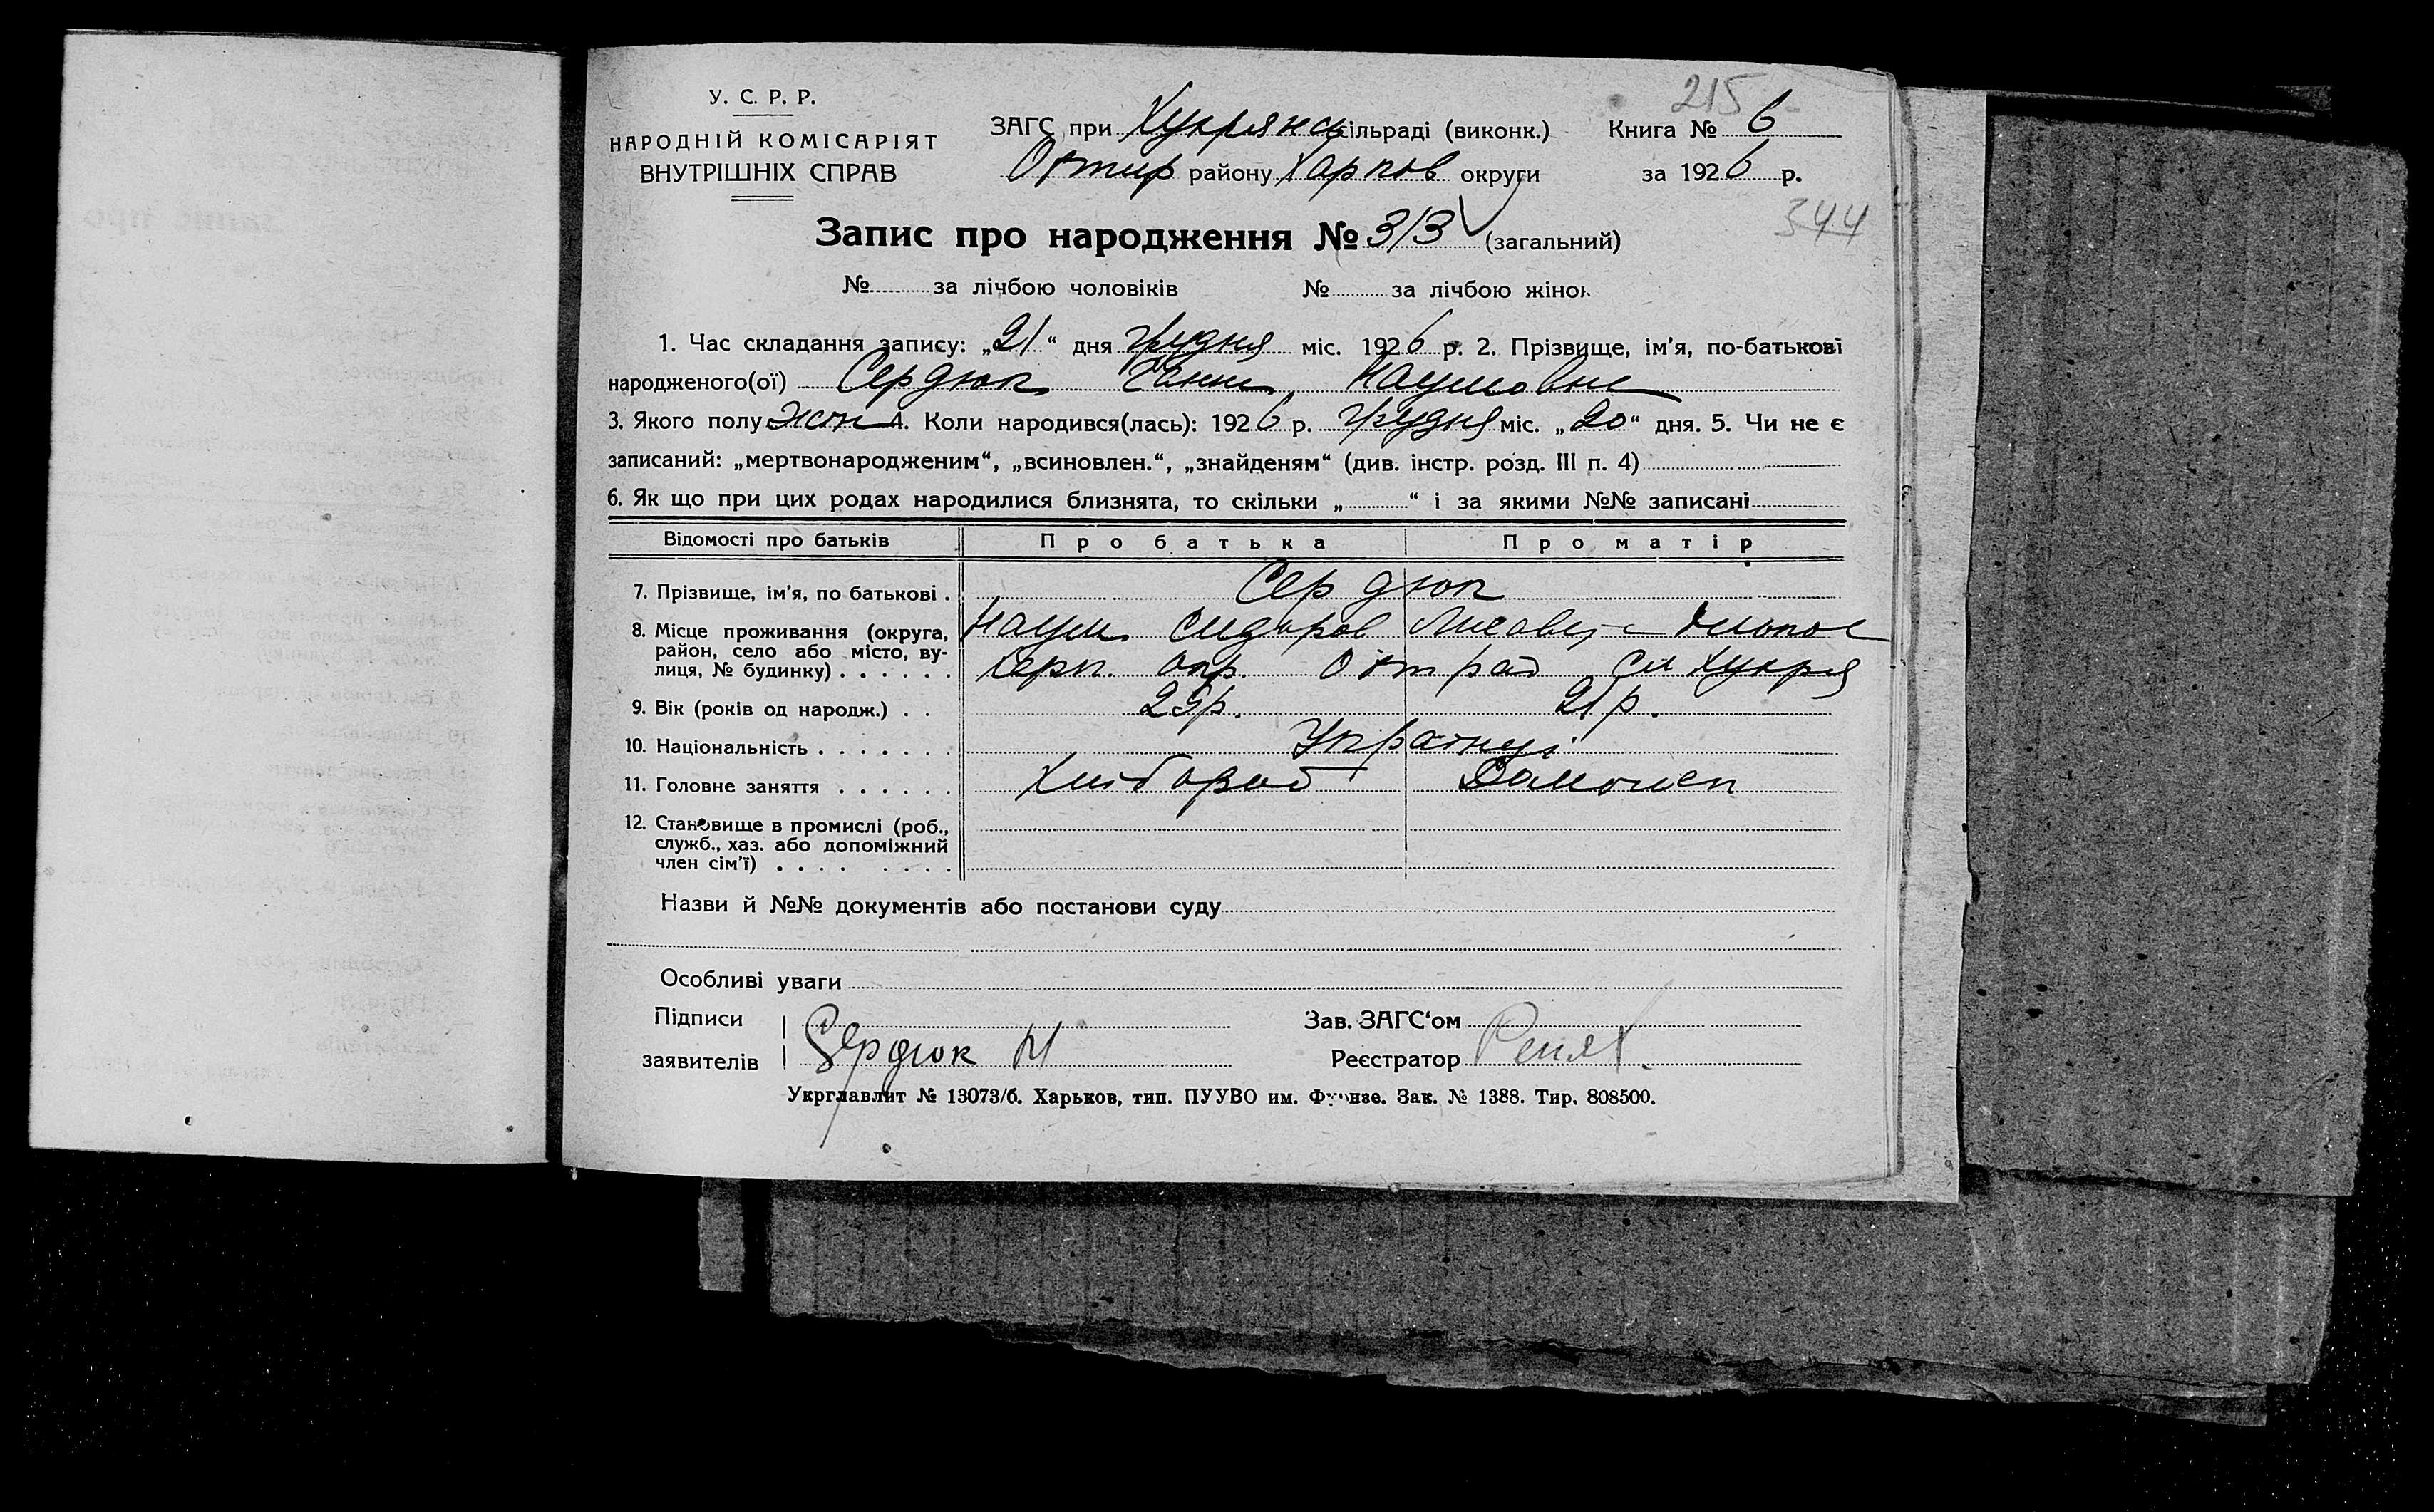 215
У. С. Р. Р.
НАРОДНІЙ КОМІСАРІЯТ
ВНУТРІШНІХ СПРАВ
ЗАГС при Хухрянсь сільраді (виконк.) Книга № 6
Охтир району Харков округи за 1926 р.
344
Запис про народження № 313 (загальний)
№ за лічбою чоловіків № за лічбою жінок
1. Час складання запису: „21“ дня грудня міс. 1926 р. 2. Прізвище, ім'я, по-батькові
народженого(ої) Сердюк Ганна Наумовна
3. Якого полу жін 4. Коли народився(лась): 1926 р. грудня міс. „20“ дня. 5. Чи не є
записаний: „мертвонародженим“, „всиновлен.“, „знайденям“ (див. інстр. розд. III п. 4)
6. Як що при цих родах народилися близнята, то скільки „ “ і за якими №№ записані
Відомості про батьків Про батька Про матір
7. Прізвище, ім'я, по батькові . Сердюк
8. Місце проживання (округа, Наум Сидоров
район, село або місто, ву-
лиця, № будинку) . . . . . . Харк. окр. Охт рай Хухря
9. Вік (років од народж.) . . 25р. 21р.
10. Національність . . . . . . . Українці
11. Головне заняття . . . . . . Хлібороб Домашен
12. Становище в промислі (роб.,
служб., хаз. або допоміжний
член сім'ї) . . . . . . . .
Назви й №№ документів або постанови суду
Особливі уваги
Підписи Зав. ЗАГС'ом
заявителів Сердюк Н Реєстратор
Укрглавлит № 13073/б. Харьков, тип. ПУУВО им. Фрунзе. Зак. № 1388. Тир. 808500.